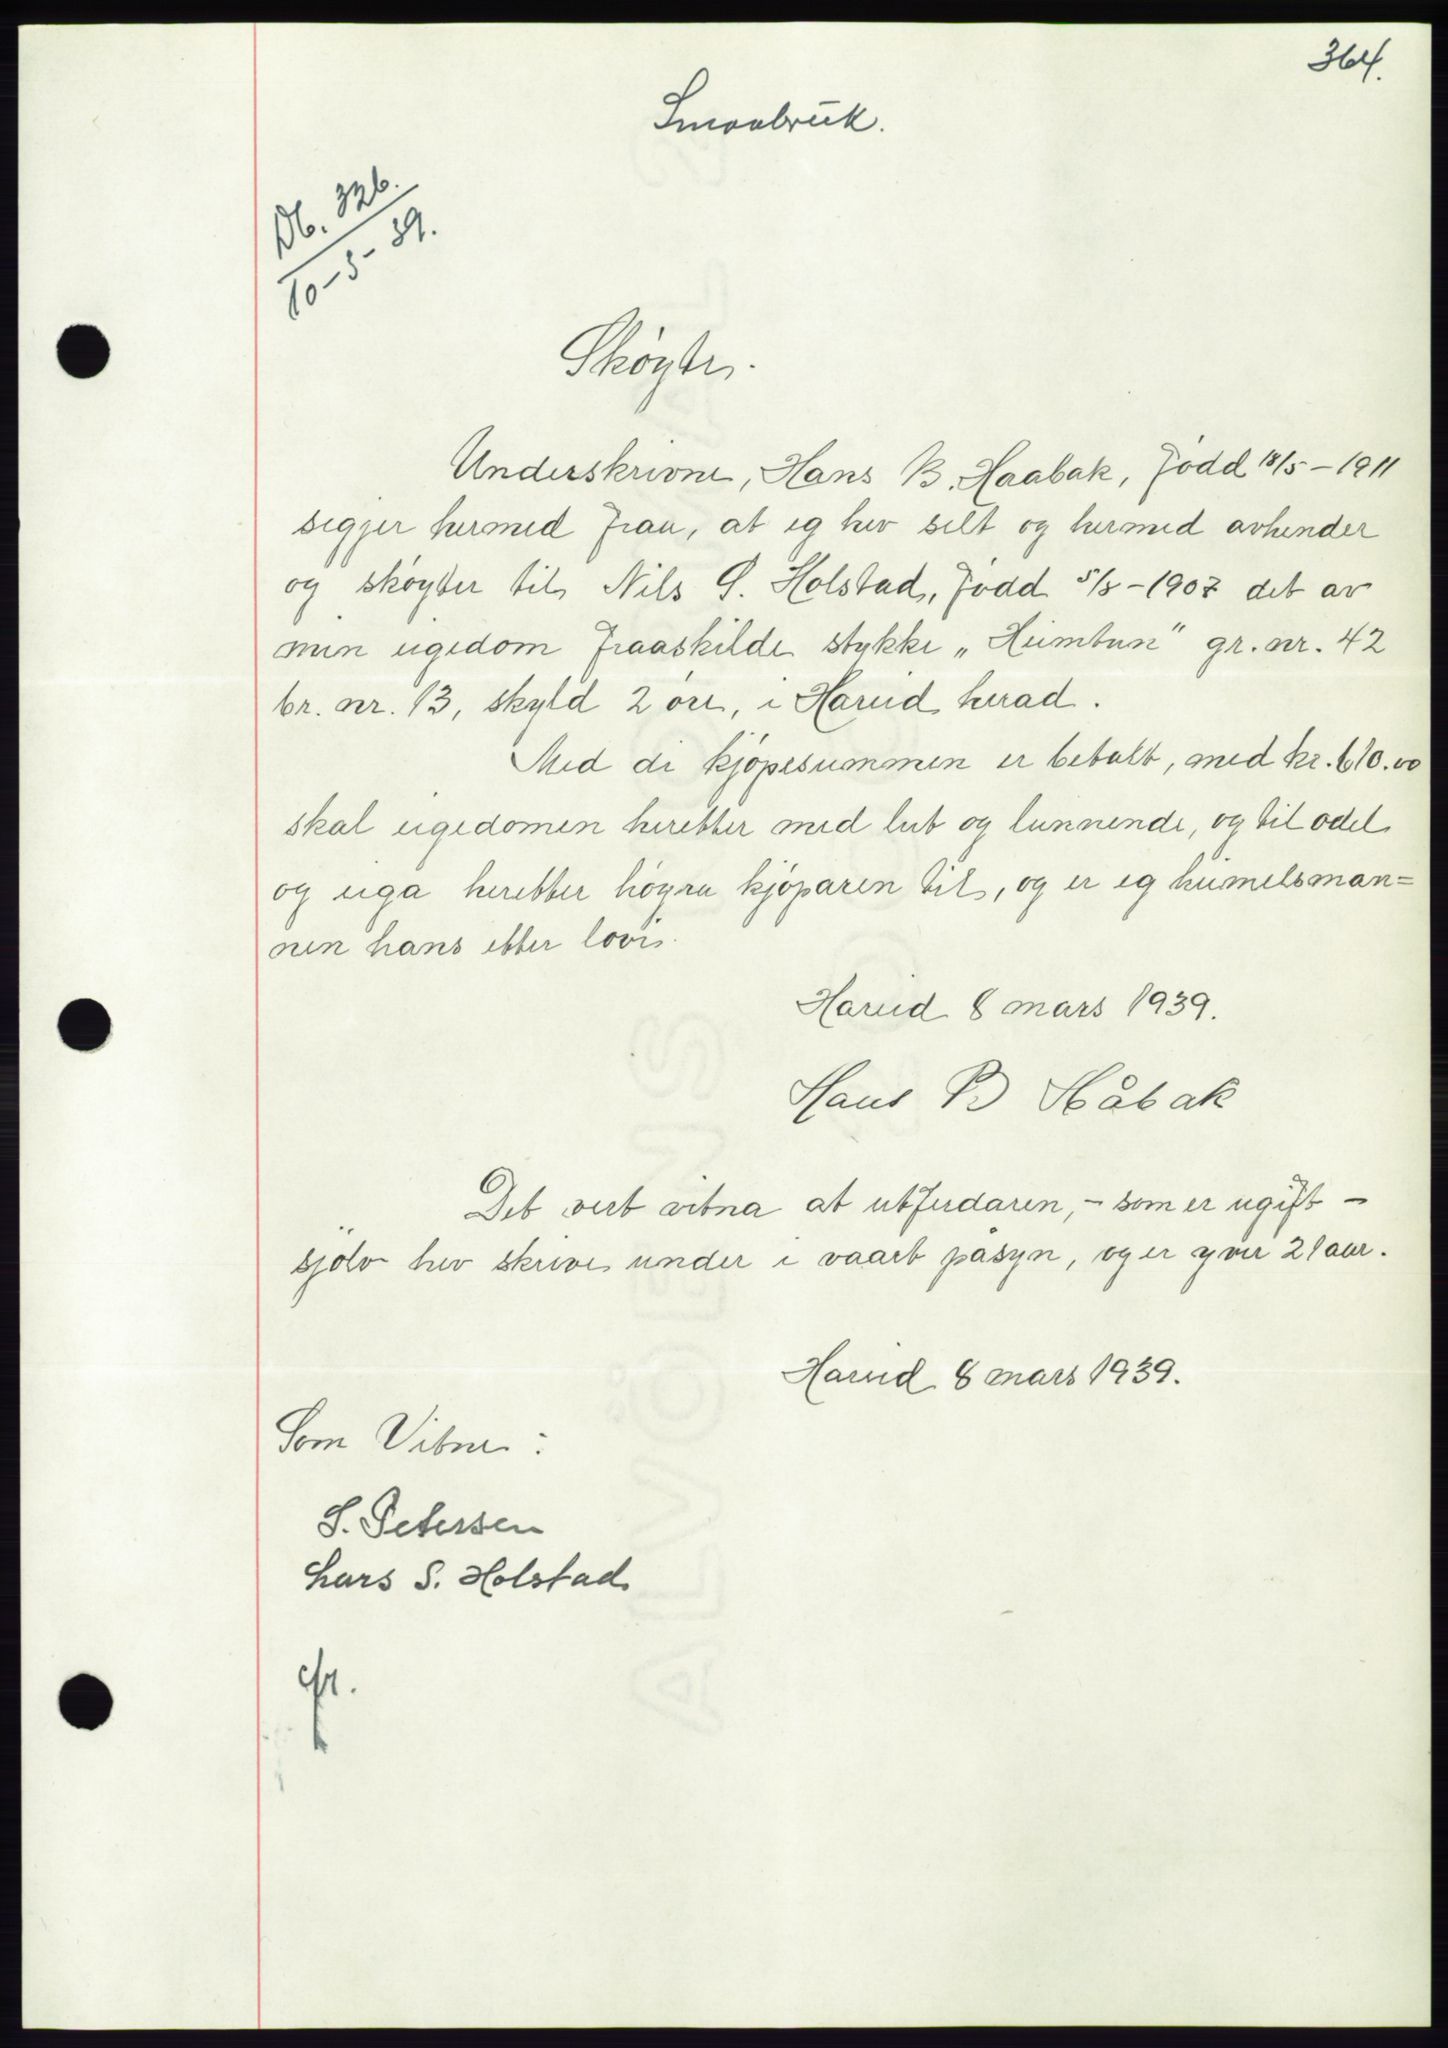 364.
Smaabruk.
Db. 326.
10-3-39.
Skøyte.
Underskrivne, Hans B. Haabak, född 18/5-1911
segjer hermed fraa, at eg hev selt og hermed avhender
og skøyter til Nils S. Holstad, född 5/3-1907 det av
min eigedom fraaskilde stykke „Heimtun" gr. nr. 42
br. nr. 13, skyld 2 öre, i Hareid herad.
Med di kjöpesummen er betalt, med kr. 610.00
skal eigedomen heretter med lut og lunnende, og til odel
og eiga heretter höyra kjöparen til, og er eg heimelsman=
nen hans etter lovi.
Hareid 8 mars 1939.
Hans B Håbak
Det vert vitna at utferdaren, - som er ugift -
sjölv hev skrive under i vaart påsyn, og er yver 21 aar.
Hareid 8 mars 1939.
Som Vitne:
S. Petersen
Lars S. Holstad
ALVÖENS